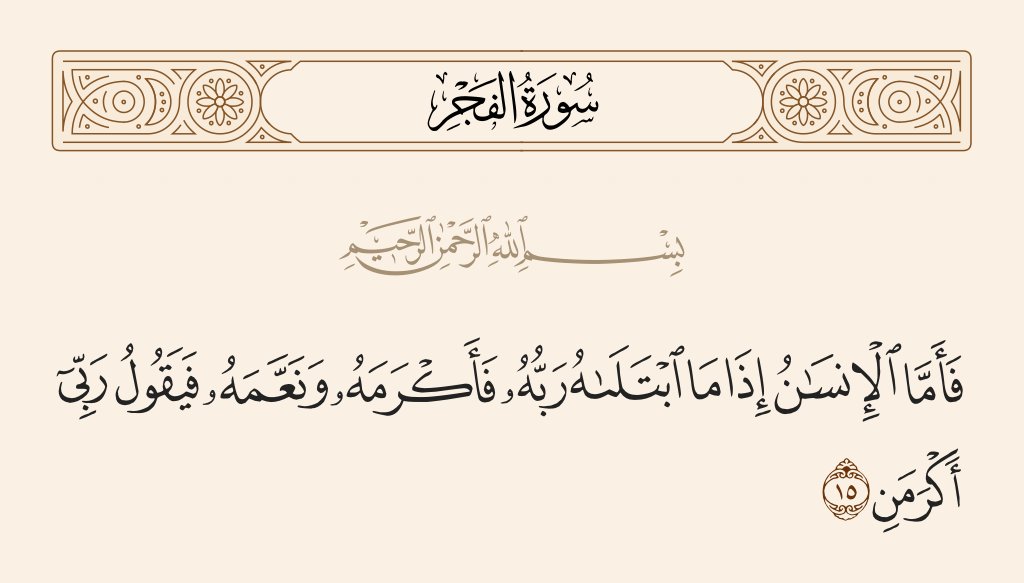 سُورَةُ الفَجْرِ
بِسْمِ ٱللَّهِ ٱلرَّحْمَٰنِ ٱلرَّحِيمِ
فَأَمَّا ٱلْإِنسَٰنُ إِذَا مَا ٱبْتَلَىٰهُ رَبُّهُۥ فَأَكْرَمَهُۥ وَنَعَّمَهُۥ فَيَقُولُ رَبِّىٓ
أَكْرَمَنِ ١٥